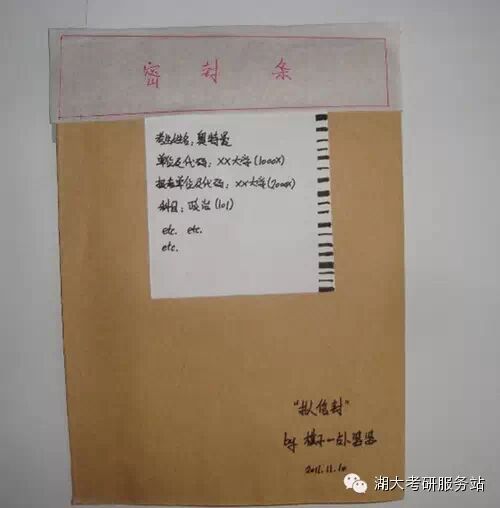 密封条
考生姓名：奥特曼
单位及代码：XX大学(1000X)
报考单位及代码：XX大学(2000X)
科目：政治(101)
etc. etc.
etc.
"拟信封"
by
2011.11.10
湖大考研服务站